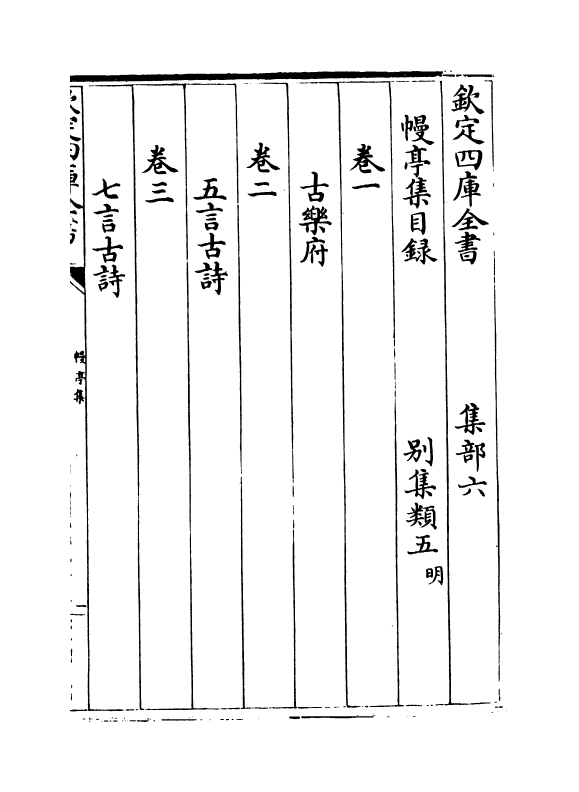 欽定四庫全書　集部六
幔亭集目録　别集類五明
卷一
古樂府
卷二
五言古詩
卷三
七言古詩
欽定四庫全書
幔亭集